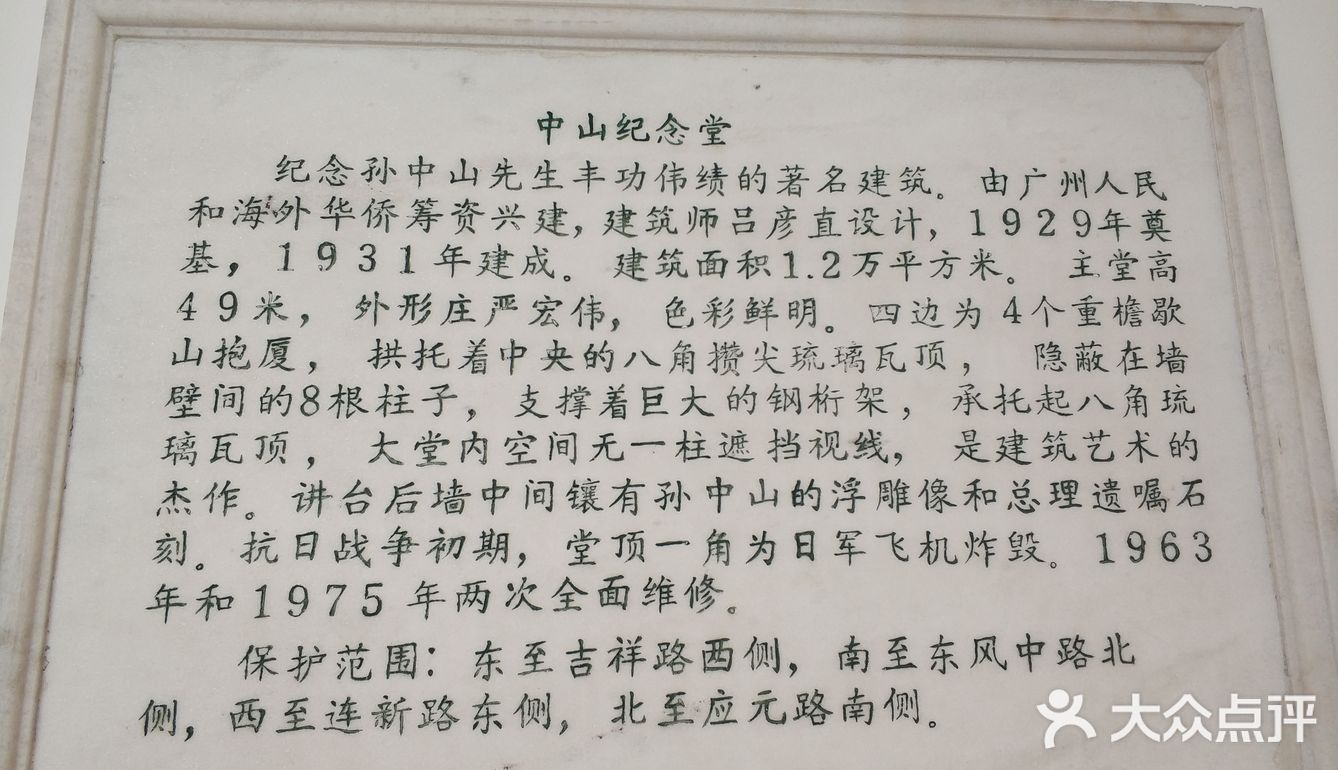 中山纪念堂
纪念孙中山先生丰功伟绩的著名建筑。由广州人民
和海外华侨筹资兴建，建筑师吕彦直设计，1929年奠
基，1931年建成。建筑面积1.2万平方米。主堂高
49米，外形庄严宏伟，色彩鲜明。四边为4个重檐歇
山抱厦，拱托着中央的八角攒尖琉璃瓦顶，隐蔽在墙
壁间的8根柱子，支撑着巨大的钢桁架，承托起八角琉
璃瓦顶，大堂内空间无一柱遮挡视线，是建筑艺术的
杰作。讲台后墙中间镶有孙中山的浮雕像和总理遗嘱石
刻。抗日战争初期，堂顶一角为日军飞机炸毁。1963
年和1975年两次全面维修。
保护范围：东至吉祥路西侧，南至东风中路北
侧，西至连新路东侧，北至应元路南侧。
大众点评